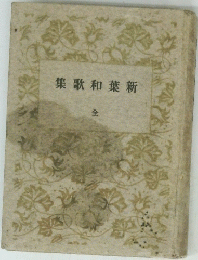 新葉和歌集
全